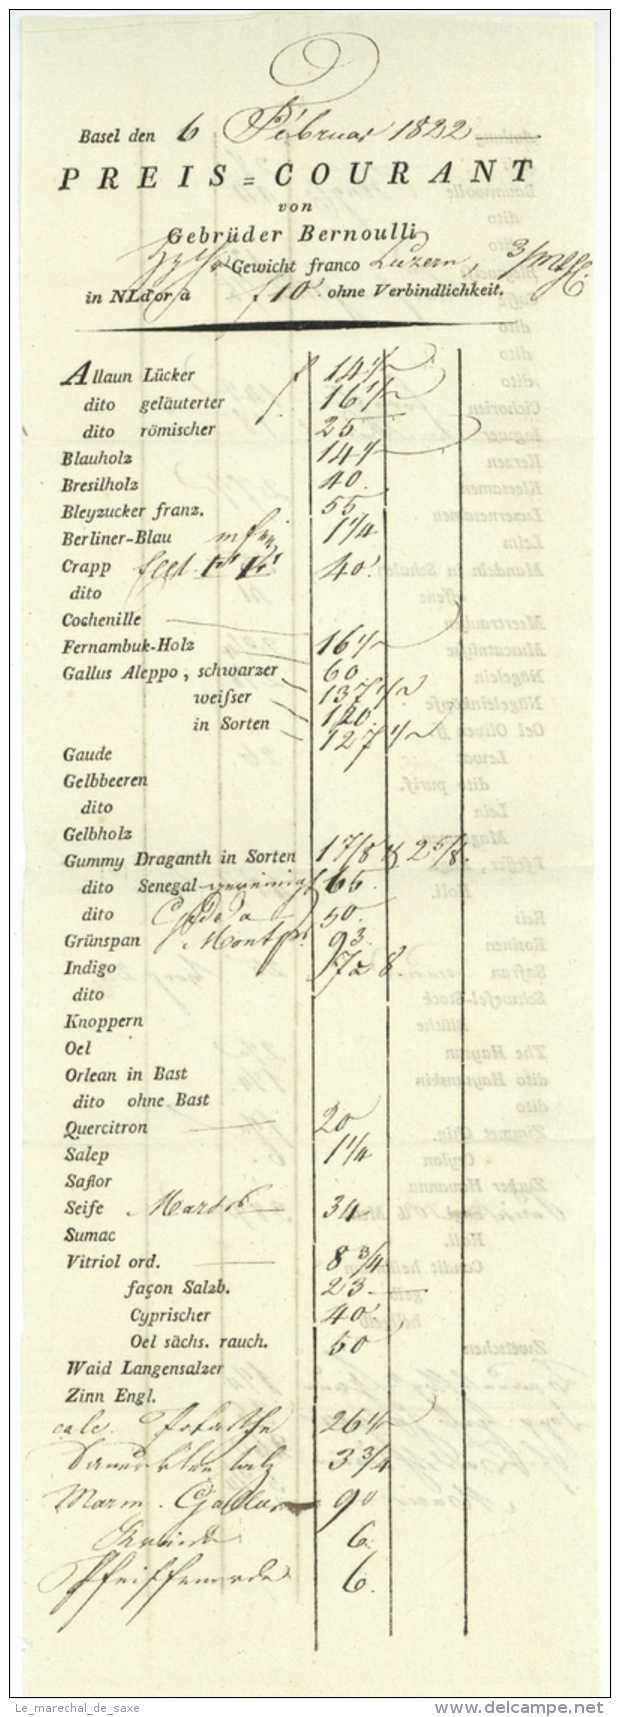 Basel den 6 Februar 1822
PREIS=COURANT
von
Gebrüder Bernoulli
Gewicht franco Luzern, 3/m
in NLd'or à f 10 ohne Verbindlichkeit.
Allaun Lücker f 14 1/2
dito geläuterter 16 1/2
dito römischer 25
Blauholz 14 1/2
Bresilholz 40.
Bleyzucker franz. 55
Berliner-Blau 1 1/4
Crapp 40.
dito
Cochenille
Fernambuk-Holz 16 1/2
Gallus Aleppo, schwarzer 60.
weisser 137 1/2
in Sorten 120.
127 1/2
Gaude
Gelbbeeren
dito
Gelbholz
Gummy Draganth in Sorten 1 7/8 2 5/8.
dito Senegal 65.
dito 50.
Grünspan Montp. 93.
Indigo 7 a 8.
dito
Knoppern
Oel
Orlean in Bast
dito ohne Bast
Quercitron 20
Salep 1 1/4
Saflor
Seife 34
Sumac
Vitriol ord. 8 3/4
façon Salzb. 23
Cyprischer 40
Oel sächs. rauch. 50
Waid Langensalzer
Zinn Engl.
calc. 26 1/2
3 3/4
Marm. 90
Kreide 6.
Pfeiffenerde 6.
Le_marechal_de_saxe
delcampe.net